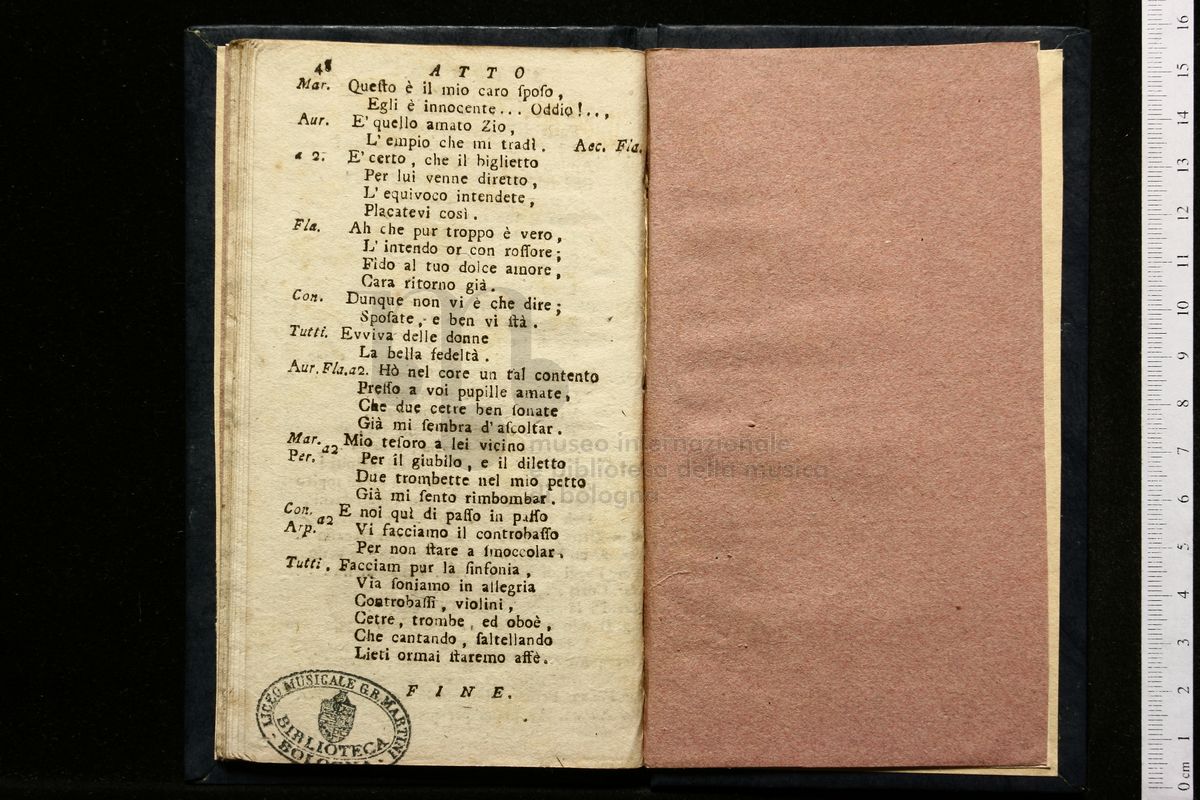 48 ATTO
Mar. Queſto è il mio caro ſpoſo,
Egli è innocente... Oddio!..,
Aur. E' quello amato Zio,
L' empio che mi tradì. Acc. Fla.
a 2. E' certo, che il biglietto
Per lui venne diretto,
L' equivoco intendete,
Placatevi così.
Fla. Ah che pur troppo è vero,
L' intendo or con roſſore;
Fido al tuo dolce amore,
Cara ritorno già.
Con. Dunque non vi è che dire;
Spoſate, e ben vi ſtà.
Tutti. Evviva delle donne
La bella fedeltà.
Aur. Fla. a2. Hò nel core un tal contento
Preſſo a voi pupille amate,
Che due cetre ben ſonate
Già mi ſembra d' aſcoltar.
Mar. a2 Mio teſoro a lei vicino
Per. Per il giubilo, e il diletto
Due trombette nel mio petto
Già mi ſento rimbombar.
Con. a2 E noi quì di paſſo in paſſo
Arp. Vi facciamo il controbaſſo
Per non ſtare a ſmoccolar.
Tutti. Facciam pur la ſinfonia,
Via ſoniamo in allegria
Controbaſſi, violini,
Cetre, trombe, ed oboè,
Che cantando, ſaltellando
Lieti ormai ſtaremo affè.
FINE.
LICEO MUSICALE G.B. MARTINI
BIBLIOTECA
- BOLOGNA -
museo internazionale
e biblioteca della musica
di bologna
0 cm 1 2 3 4 5 6 7 8 9 10 11 12 13 14 15 16